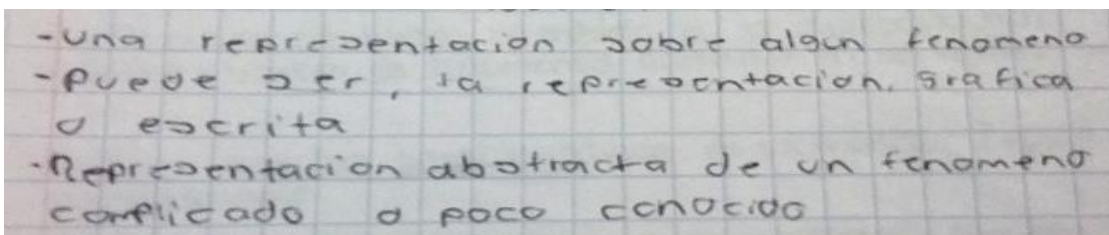 -una representacion sobre algun fenomeno
-Puede ser, la representacion, grafica
o escrita
-Representacion abstracta de un fenomeno
complicado o poco conocido